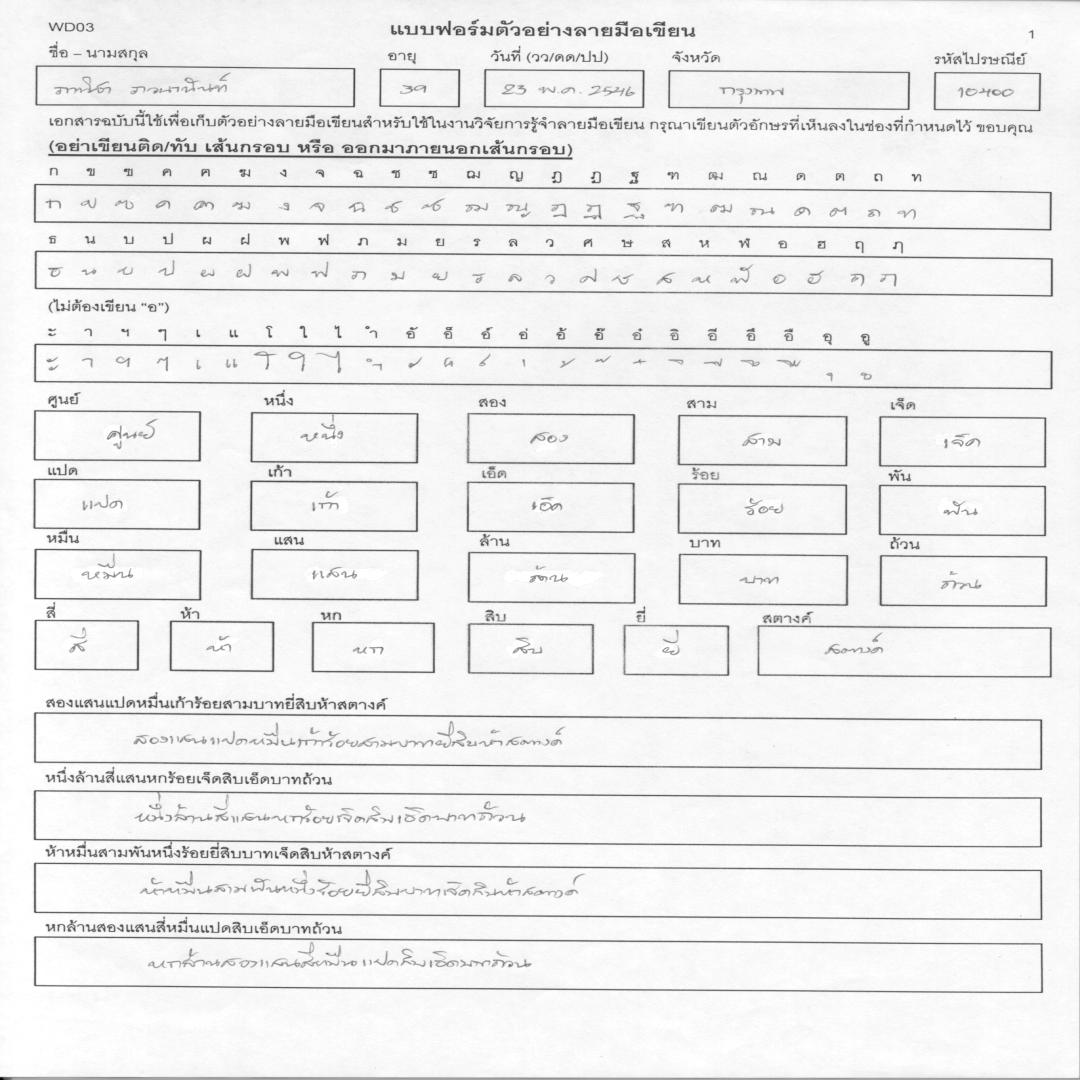 WD03 แบบฟอร์มตัวอย่างลายมือเขียน 1
ชื่อ – นามสกุล อายุ วันที่ (วว/ดด/ปป) จังหวัด รหัสไปรษณีย์
39 23 พ.ค. 2546 กรุงเทพ 10400
เอกสารฉบับนี้ใช้เพื่อเก็บตัวอย่างลายมือเขียนสำหรับใช้ในงานวิจัยการรู้จำลายมือเขียน กรุณาเขียนตัวอักษรที่เห็นลงในช่องที่กำหนดไว้ ขอบคุณ
(อย่าเขียนติด/ทับ เส้นกรอบ หรือ ออกมาภายนอกเส้นกรอบ)
ก ข ฃ ค ฅ ฆ ง จ ฉ ช ซ ฌ ญ ฎ ฏ ฐ ฑ ฒ ณ ด ต ถ ท
ก ข ฃ ค ฅ ฆ ง จ ฉ ช ซ ฌ ญ ฎ ฏ ฐ ฑ ฒ ณ ด ต ถ ท
ธ น บ ป ผ ฝ พ ฟ ภ ม ย ร ล ว ศ ษ ส ห ฬ อ ฮ ฤ ฦ
ธ น บ ป ผ ฝ พ ฟ ภ ม ย ร ล ว ศ ษ ส ห ฬ อ ฮ ฤ ฦ
(ไม่ต้องเขียน “อ”)
ะ า ฯ ๆ เ แ โ ใ ไ ำ อั อ็ อ์ อ่ อ้ อ๊ อ๋ อิ อี อึ อื อุ อู
ะ า ฯ ๆ เ แ โ ใ ไ ำ ั ็ ์ ่ ้ ๊ ๋ ิ ี ึ ื ุ ู
ศูนย์ หนึ่ง สอง สาม เจ็ด
ศูนย์ หนึ่ง สอง สาม เจ็ด
แปด เก้า เอ็ด ร้อย พัน
แปด เก้า เอ็ด ร้อย พัน
หมื่น แสน ล้าน บาท ถ้วน
หมื่น แสน ล้าน บาท ถ้วน
สี่ ห้า หก สิบ ยี่ สตางค์
สี่ ห้า หก สิบ ยี่ สตางค์
สองแสนแปดหมื่นเก้าร้อยสามบาทยี่สิบห้าสตางค์
สองแสนแปดหมื่นเก้าร้อยสามบาทยี่สิบห้าสตางค์
หนึ่งล้านสี่แสนหกร้อยเจ็ดสิบเอ็ดบาทถ้วน
หนึ่งล้านสี่แสนหกร้อยเจ็ดสิบเอ็ดบาทถ้วน
ห้าหมื่นสามพันหนึ่งร้อยยี่สิบบาทเจ็ดสิบห้าสตางค์
ห้าหมื่นสามพันหนึ่งร้อยยี่สิบบาทเจ็ดสิบห้าสตางค์
หกล้านสองแสนสี่หมื่นแปดสิบเอ็ดบาทถ้วน
หกล้านสองแสนสี่หมื่นแปดสิบเอ็ดบาทถ้วน